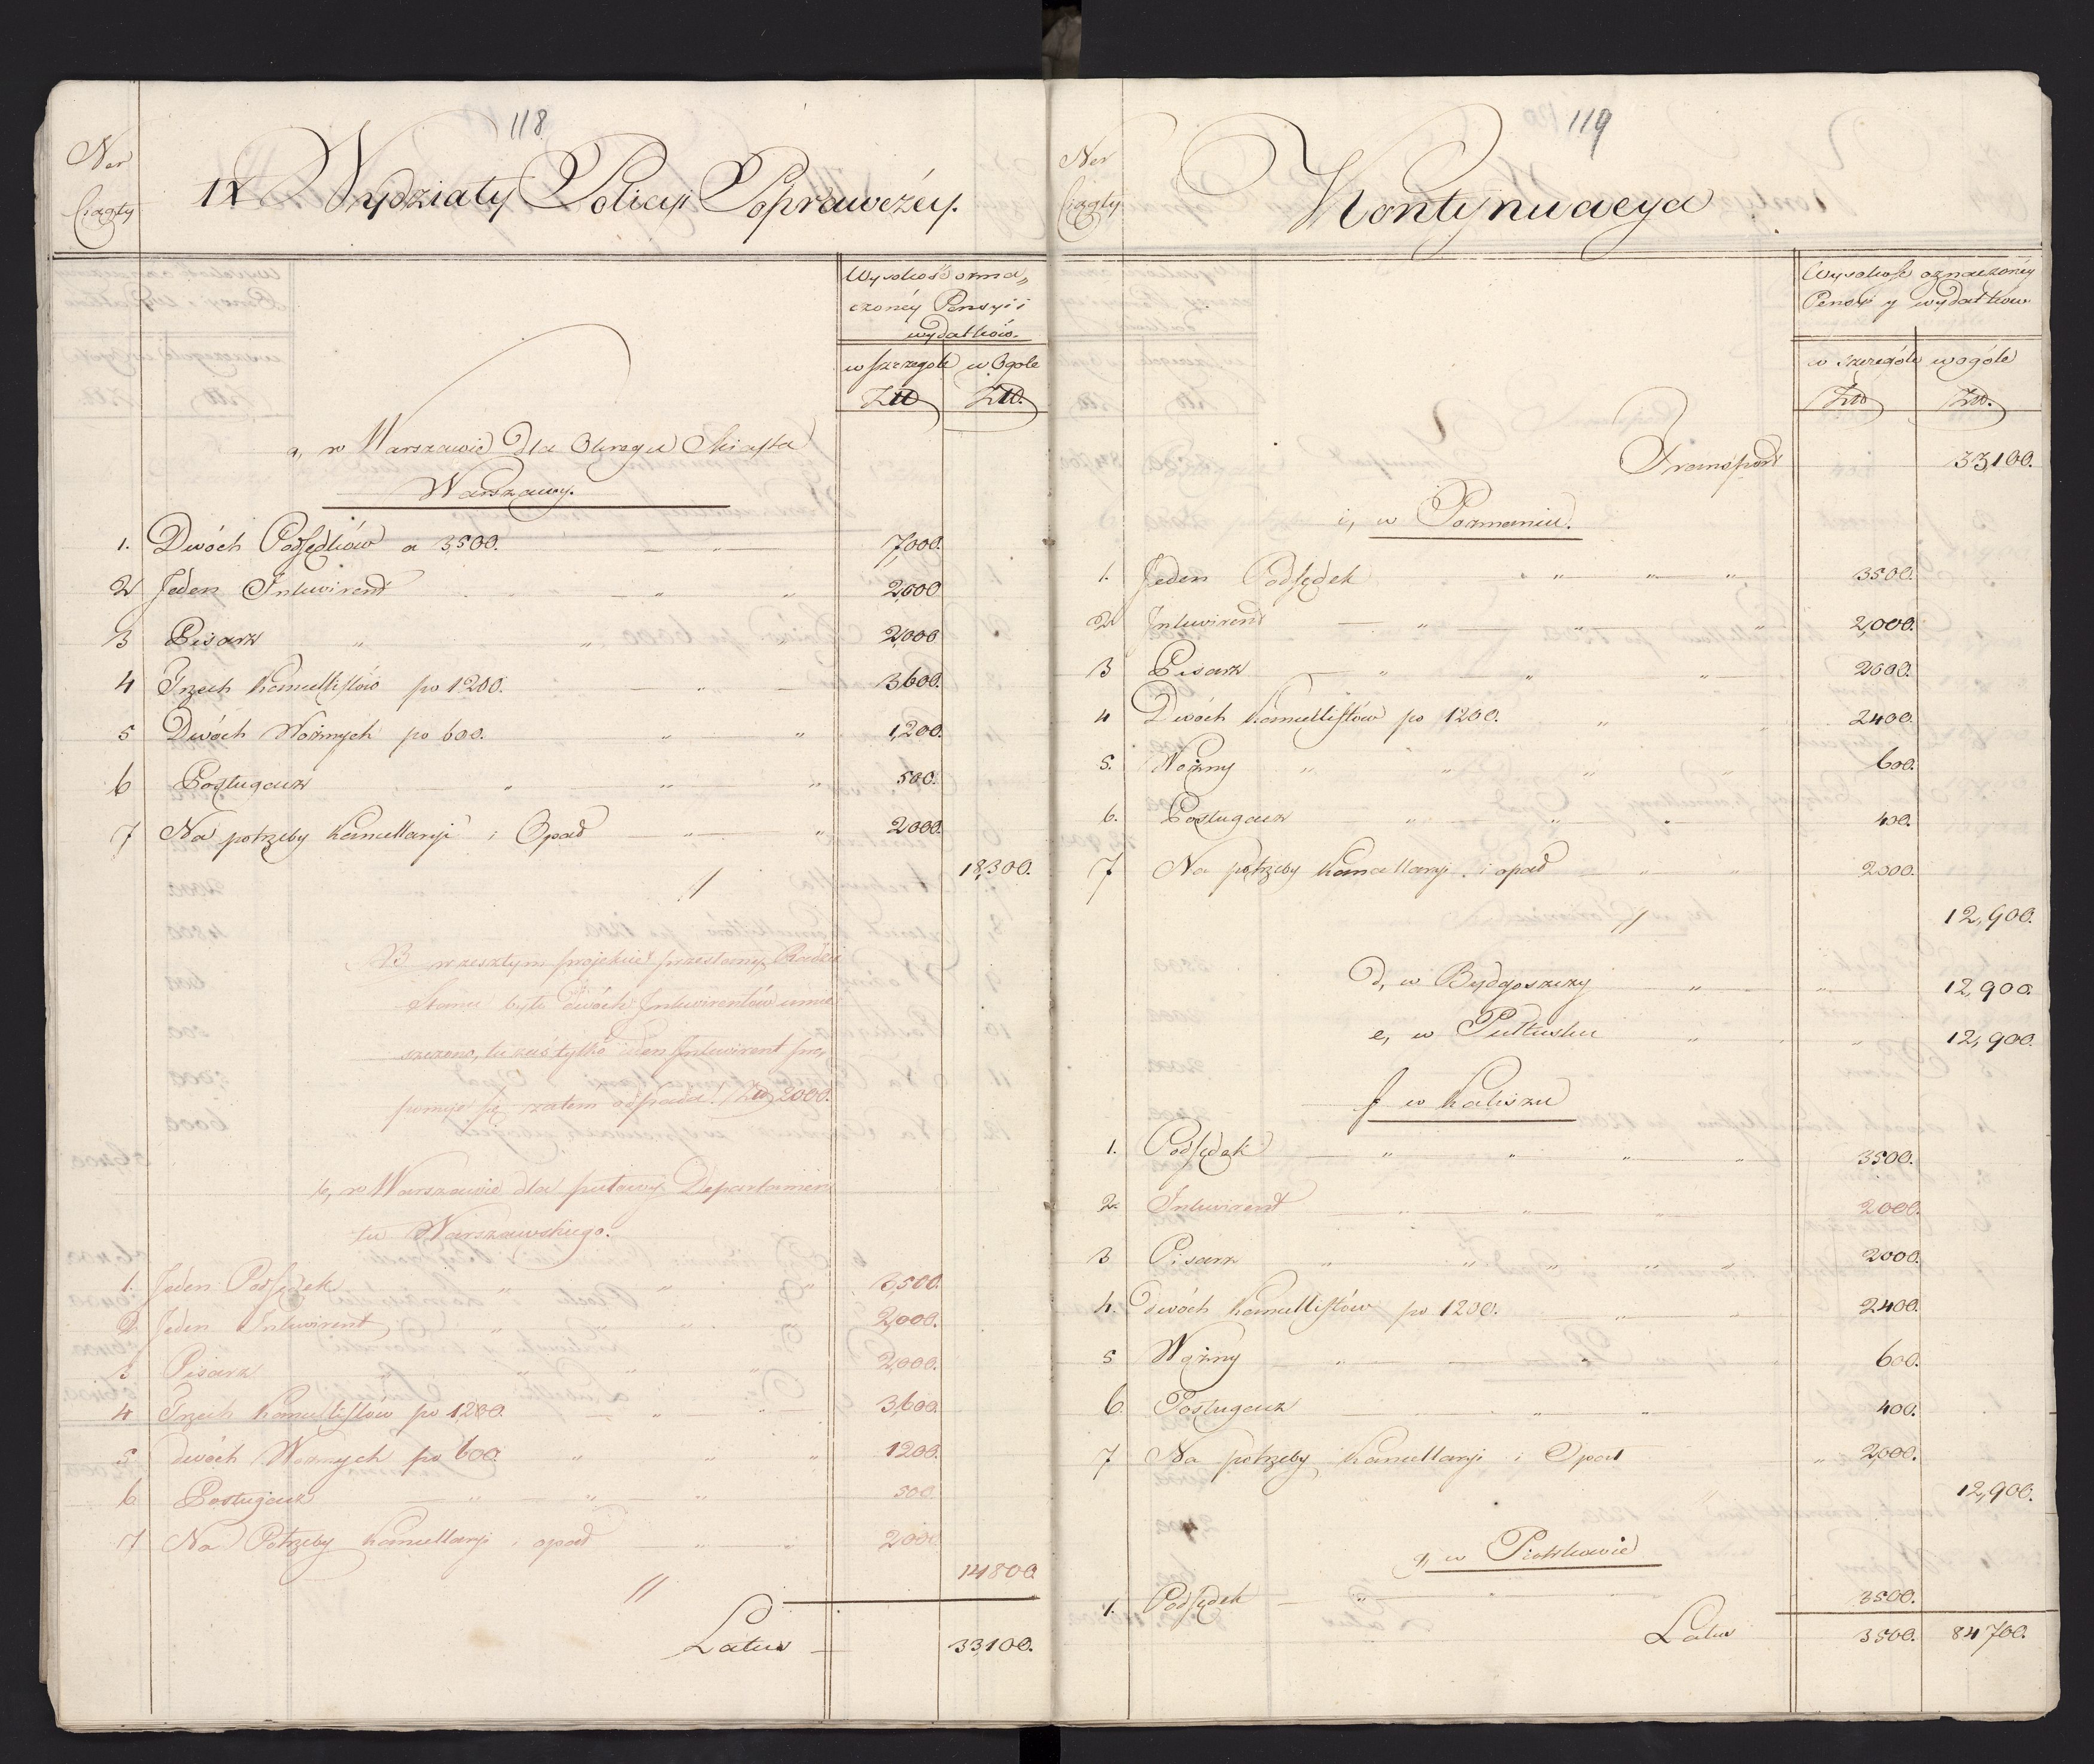 118
Ner
ciągły
IX Wydziały Policyi Poprawczéy.
Wysokość ozna„
czonéy Pensyi i
wydatków.
w szczegole w Ogole
Złł Złł.
a, w Warszawie dla Okręgu Miasta
Warszawy.
1. Dwóch Podsędków a 3,500. 7,000.
2 Jeden Inkwirent 2,000
3 Pisarz 2,000
4 Trzech Kancellistów po 1200. 3,600.
5 Dwóch Woźnych po 600. 1,200.
6 Posługacz 500.
7 Na potrzeby Kancellaryi i Opad 2000.
18,300.
NB w zeszłym projekcie przesłanym Radzie
Stanu było dwóch Inkwirentów umie„
szczono, tu zaś tylko jeden Inkwirent pro„
ponuje się zatem odpada Złł 2000.
b, w Warszawie dla połowy Departamen
tu Warszawskiego.
1. Jeden Podsędek 3,500.
2. Jeden Inkwirent 2,000.
3 Pisarz 2,000.
4 Trzech Kancellistów po 1,200. 3,600.
5 dwóch Woźnych po 600. 1200.
6 Posługacz 500.
7 Na Potrzeby Kancellaryi i opad 2000
14800
Latus 33,100.
119
Ner
ciągły
Kontynuacya
Wysokość oznaczonéy
Pensyi y wydatków
w szczególe wogóle
Złł Złł.
Transport 33,100.
c, w Poznaniu.
1. Jeden Podsędek 3500.
2. Inkwirent 2,000.
3 Pisarz 2000.
4 Dwóch Kancellistów po 1200. 2400.
5. Woźny 600.
6. Posługacz 400.
7 Na potrzeby Kancellaryi i opad 2000.
12,900.
d, w Bydgoszczy 12,900.
e, w Pułtusku 12,900.
f w Kaliszu
1. Podsędek 3500.
2. Inkwirent 2000.
3 Pisarz 2000.
4. dwóch Kancellistów po 1200. 2400.
5 Woźny 600.
6. Posługacz 400.
7 Na potrzeby Kancellaryi i Opad 2,000.
12,900.
g, w Piotrkowie
1. Podsędek 3500.
Latus 3500. 84700.